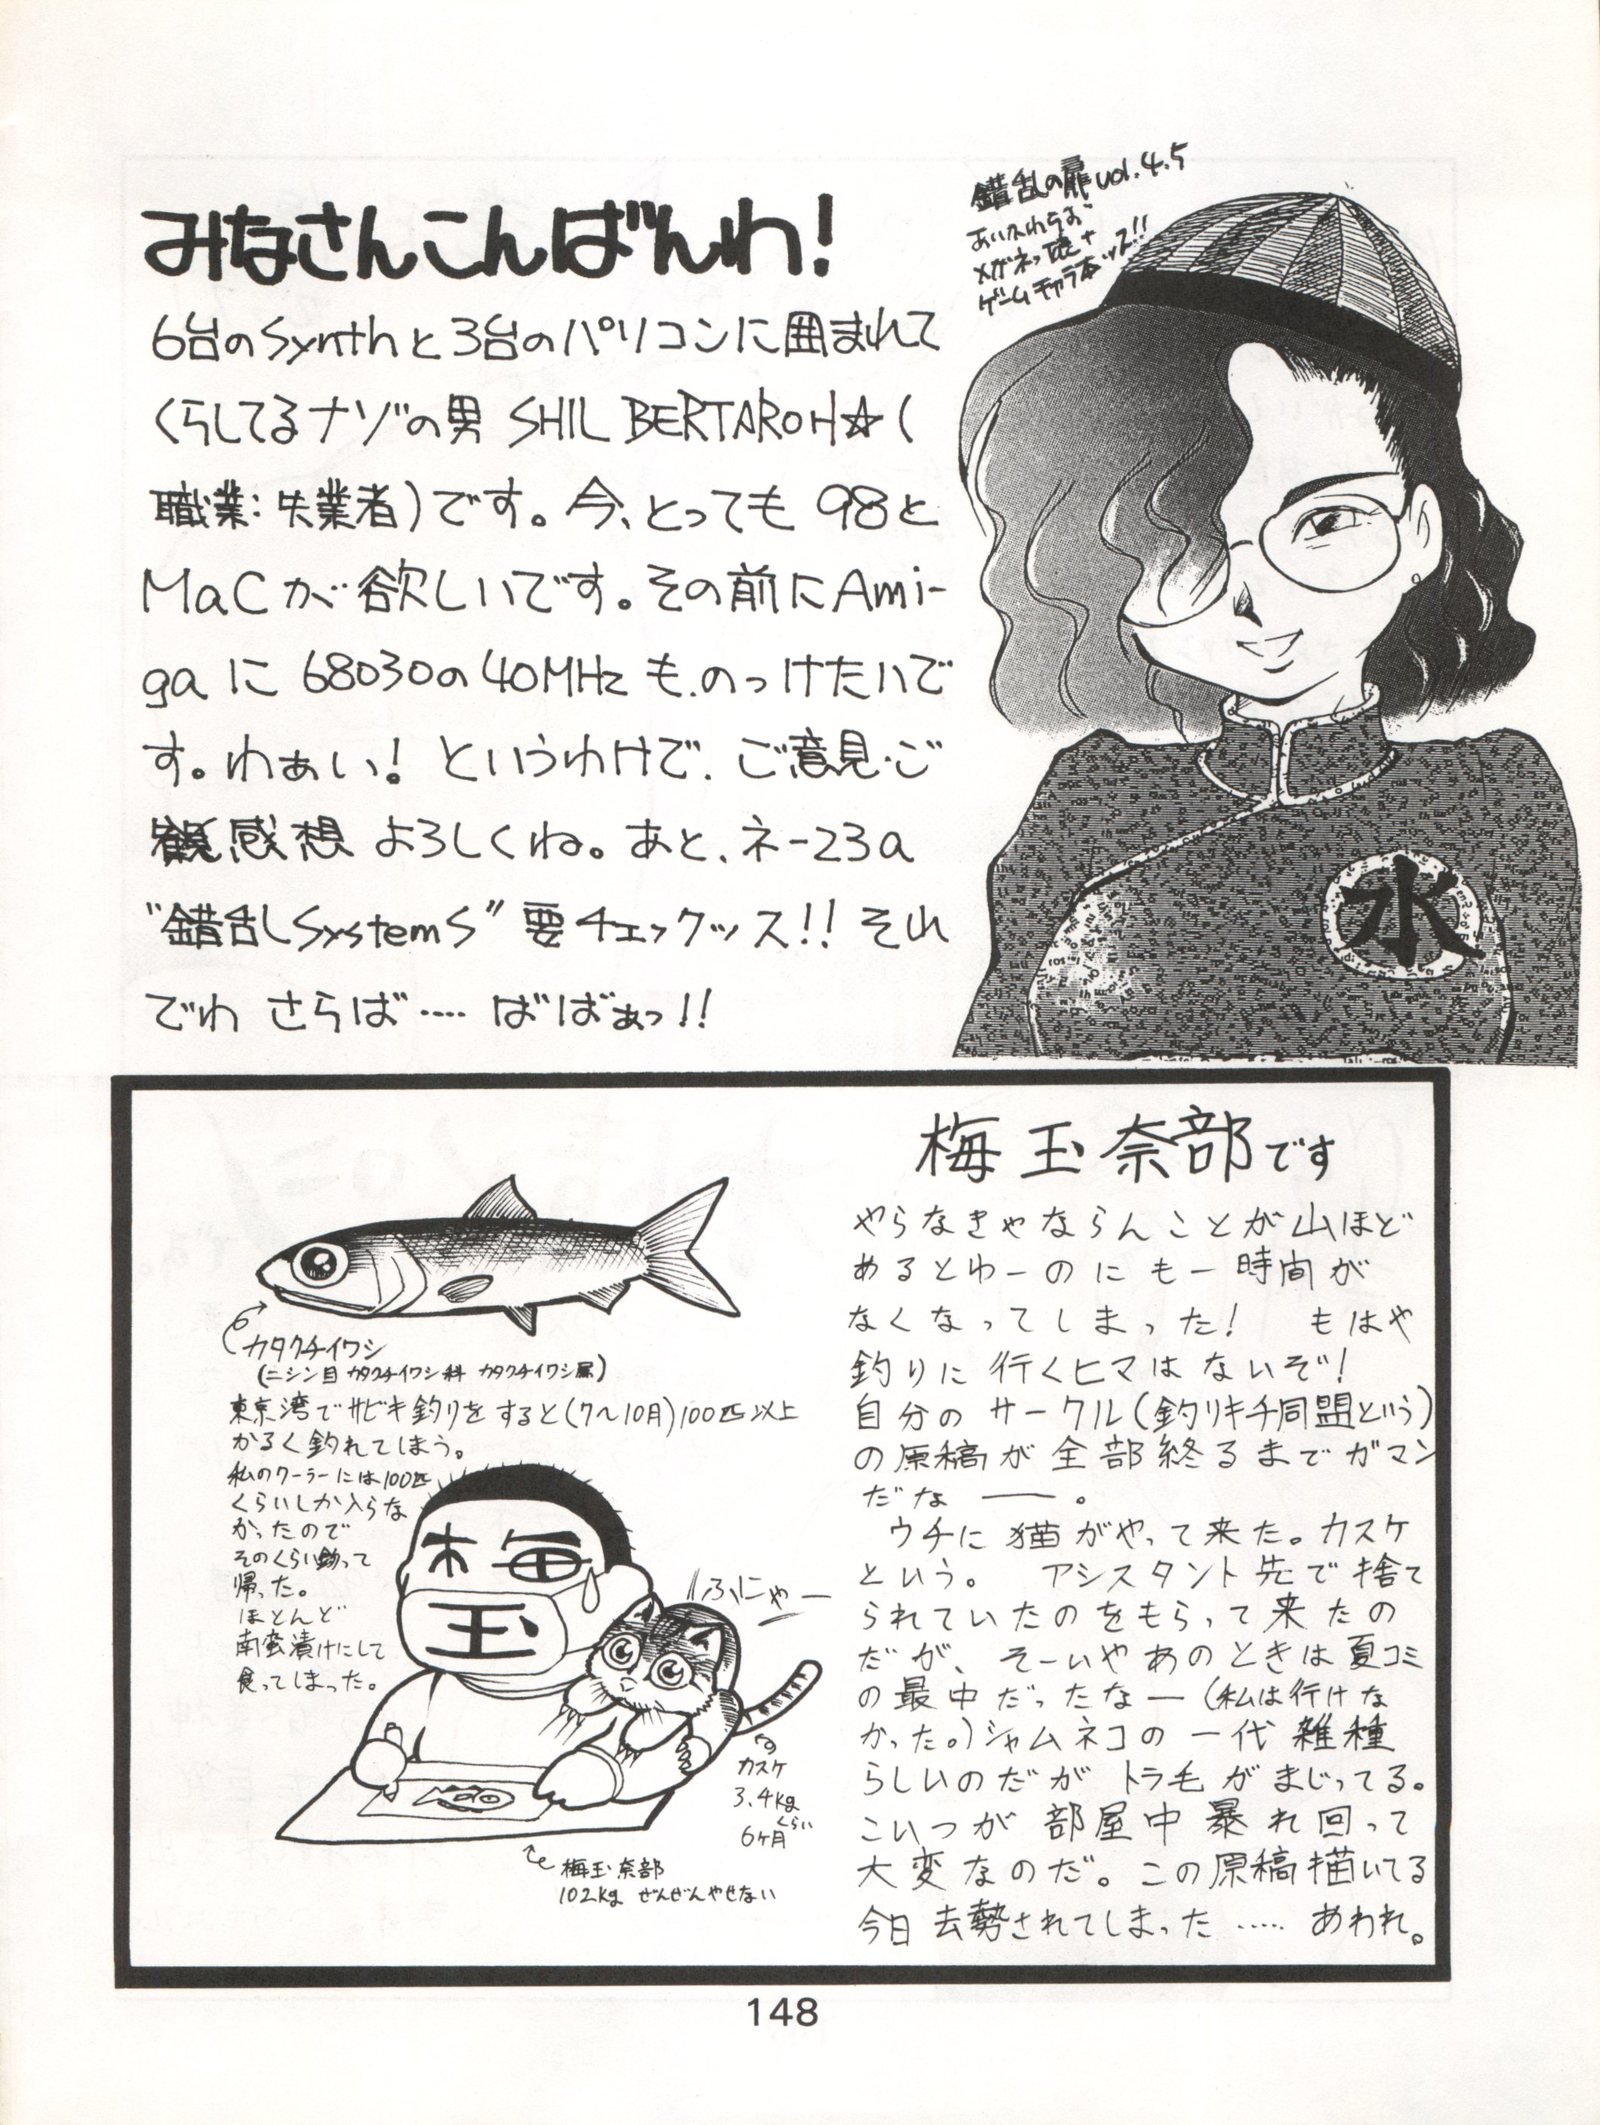 みなさんこんばんわ!
6台のSynthと3台のパソコンに囲まれて
くらしてるナゾの男 SHIL BERTAROH☆(
職業:失業者)です。今、とっても 98と
MaCが欲しいです。その前にAmi-
gaに68030の40MHzも、のっけたいで
す。わぁい! というわけで、ご意見・ご
感想 よろしくね。あと、ネ-23a
"錯乱SystemS"要チェックッス!! それ
でわ さらば‥‥ ばばぁっ!!
錯乱の扉vol.4.5
あいかわらず
メガネっ娘+
ゲームキャラ本ッス!!
水
梅玉奈部です
やらなきゃならんことが山ほど
あるとゆーのにもー時間が
なくなってしまった! もはや
釣りに行くヒマはないぞ!
自分のサークル(釣りキチ同盟という)
の原稿が全部終るまでガマン
だな――。
ウチに猫がやって来た。カスケ
という。 アシスタント先で捨て
られていたのをもらって来たの
だが、そーいやあのときは夏コミ
の最中だったなー(私は行けな
かった。)シャムネコの一代雑種
らしいのだがトラ毛がまじってる。
こいつが部屋中暴れ回って
大変なのだ。この原稿描いてる
今日去勢されてしまった……あわれ。
カタクチイワシ
(ニシン目 カタクチイワシ科 カタクチイワシ属)
東京湾でサビキ釣りをすると(7〜10月)100匹以上
かるく釣れてしまう。
私のクーラーには100匹
くらいしか入らな
かったので
そのくらい釣って
帰った。
ほとんど
南蛮漬けにして
食ってしまった。
梅
玉
ふにゃー
カスケ
3.4kg
くらい
6ヶ月
梅玉奈部
102kg ぜんぜんやせない
148